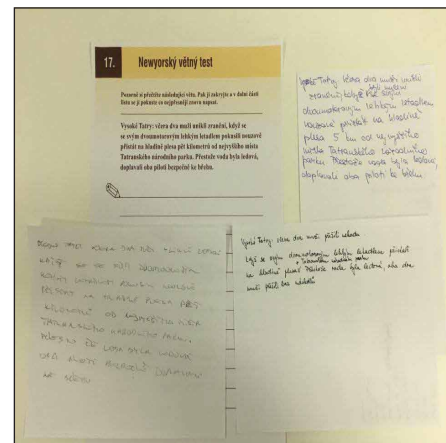 17. Newyorský větný test
Pozorně si přečtěte následující větu. Pak ji zakryjte a v dolní části
listu se ji pokuste co nejpřesněji znovu napsat.
Vysoké Tatry: včera dva muži unikli zranění, když se
se svým dvoumotorovým lehkým letadlem pokusili nouzově
přistát na hladině plesa pět kilometrů od nejvyššího místa
Tatranského národního parku. Přestože voda byla ledová,
doplavali oba piloti bezpečně ke břehu.
Vysoké Tatry: včera dva muži unikli
zranění, když se svým
dvoumotorovým lehkým letadlem
přistát na hladině
plesa 5 km od nejvyššího
místa Tatranského národního
parku. Přestože voda byla ledová,
doplavali oba piloti ke břehu.
Vysoké Tatry: včera dva muži přežili nehodu
když se svým dvoumotorovým lehkým letadlem přistáli
v Tatranském národním parku
na hladině plesa. Přestože voda byla ledová, oba dva
muži přežili bez
VČERA DVA MUŽI UNIKLI
KDYŽ SE
PŘISTÁT NA HLADINĚ PLESA PĚT
KILOMETRŮ OD MÍSTA
TATRANSKÉHO NÁRODNÍHO PARKU.
BYLA LEDOVÁ
OBA PILOTI BEZPEČNĚ
KE BŘEHU